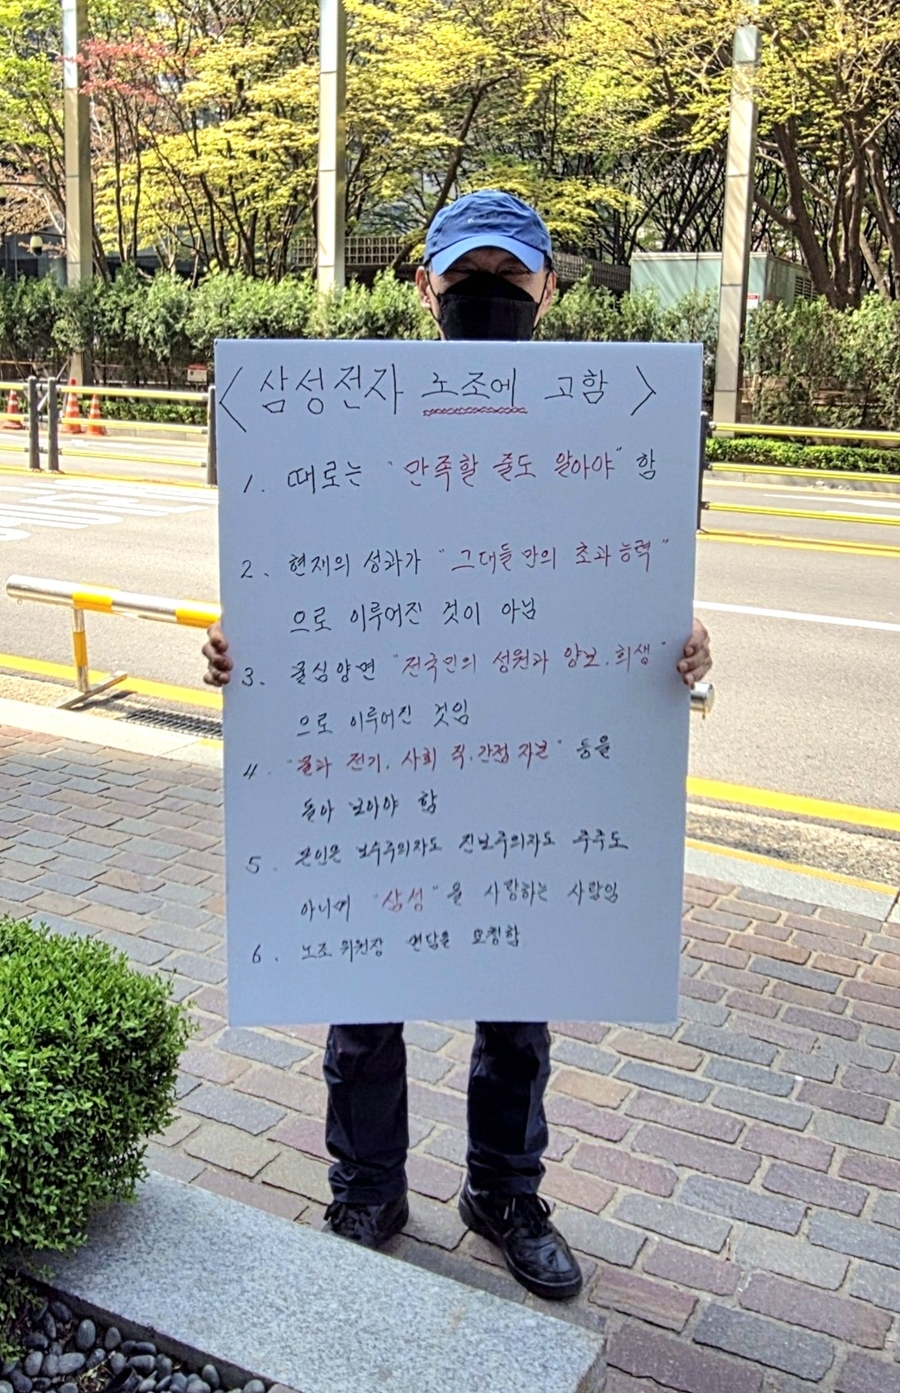 <삼성전자 노조에 고함>
1. 때로는 "만족할 줄도 알아야" 함
2. 현재의 성과가 "그대들만의 초과능력"
으로 이루어진 것이 아님
3. 물심양면 "전국민의 성원과 양보.희생"
으로 이루어진 것임
4. "물과 전기. 사회 직.간접 자본" 등을
돌아 보아야 함
5. 본인은 보수주의자도 진보주의자도 주주도
아니며 "삼성"을 사랑하는 사람임
6. 노조 위원장 면담을 요청함